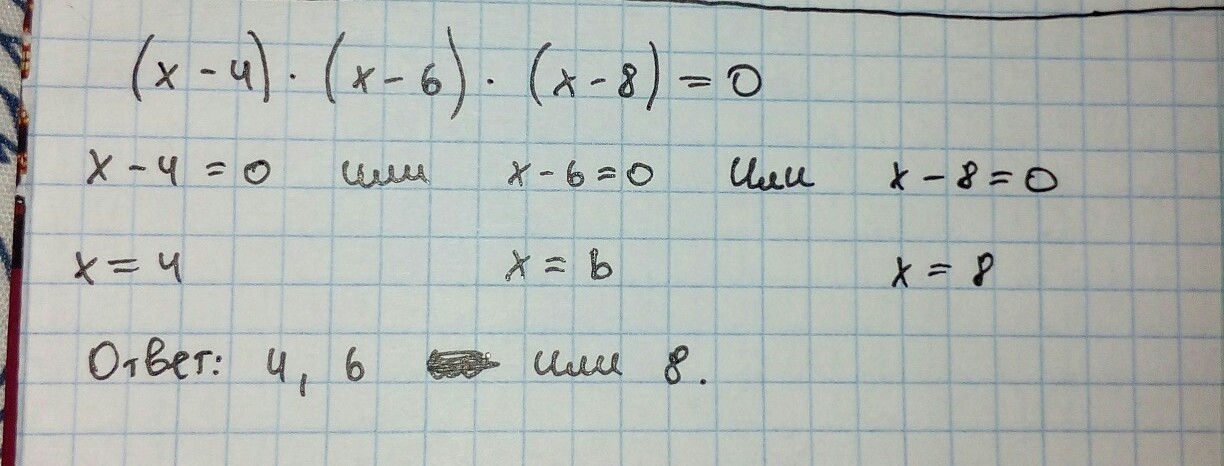 (x - 4) · (x - 6) · (x - 8) = 0
x - 4 = 0 или x - 6 = 0 или x - 8 = 0
x = 4 x = 6 x = 8
Ответ: 4, 6 или 8.